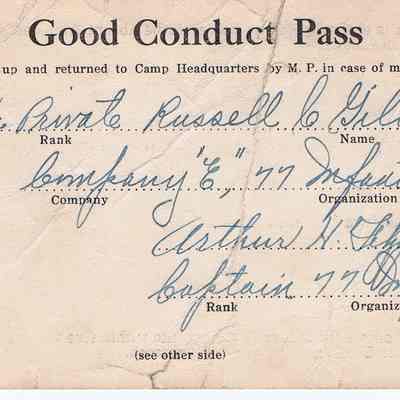 Good Conduct Pass
up and returned to Camp Headquarters by M. P. in case of m
Private Russell C
Rank Name
Company "E," 77
Company Organization
Arthur H.
Captain 77
Rank Organiz
(see other side)